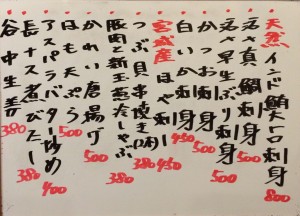 天然インド鮪トロ刺身 800
活〆真鯛刺身 500
活〆早生ぶり刺身 500
白いか刺身 500
かつお刺身 450
宮城産ほや刺し 450
つぶ貝串焼き 380
豚肉と新玉葱蒸ししゃぶ 380
かれい唐揚げ 500
はも天ぷら 500
アスパラバター炒め 400
長ナス煮びたし 380
谷中生姜 380